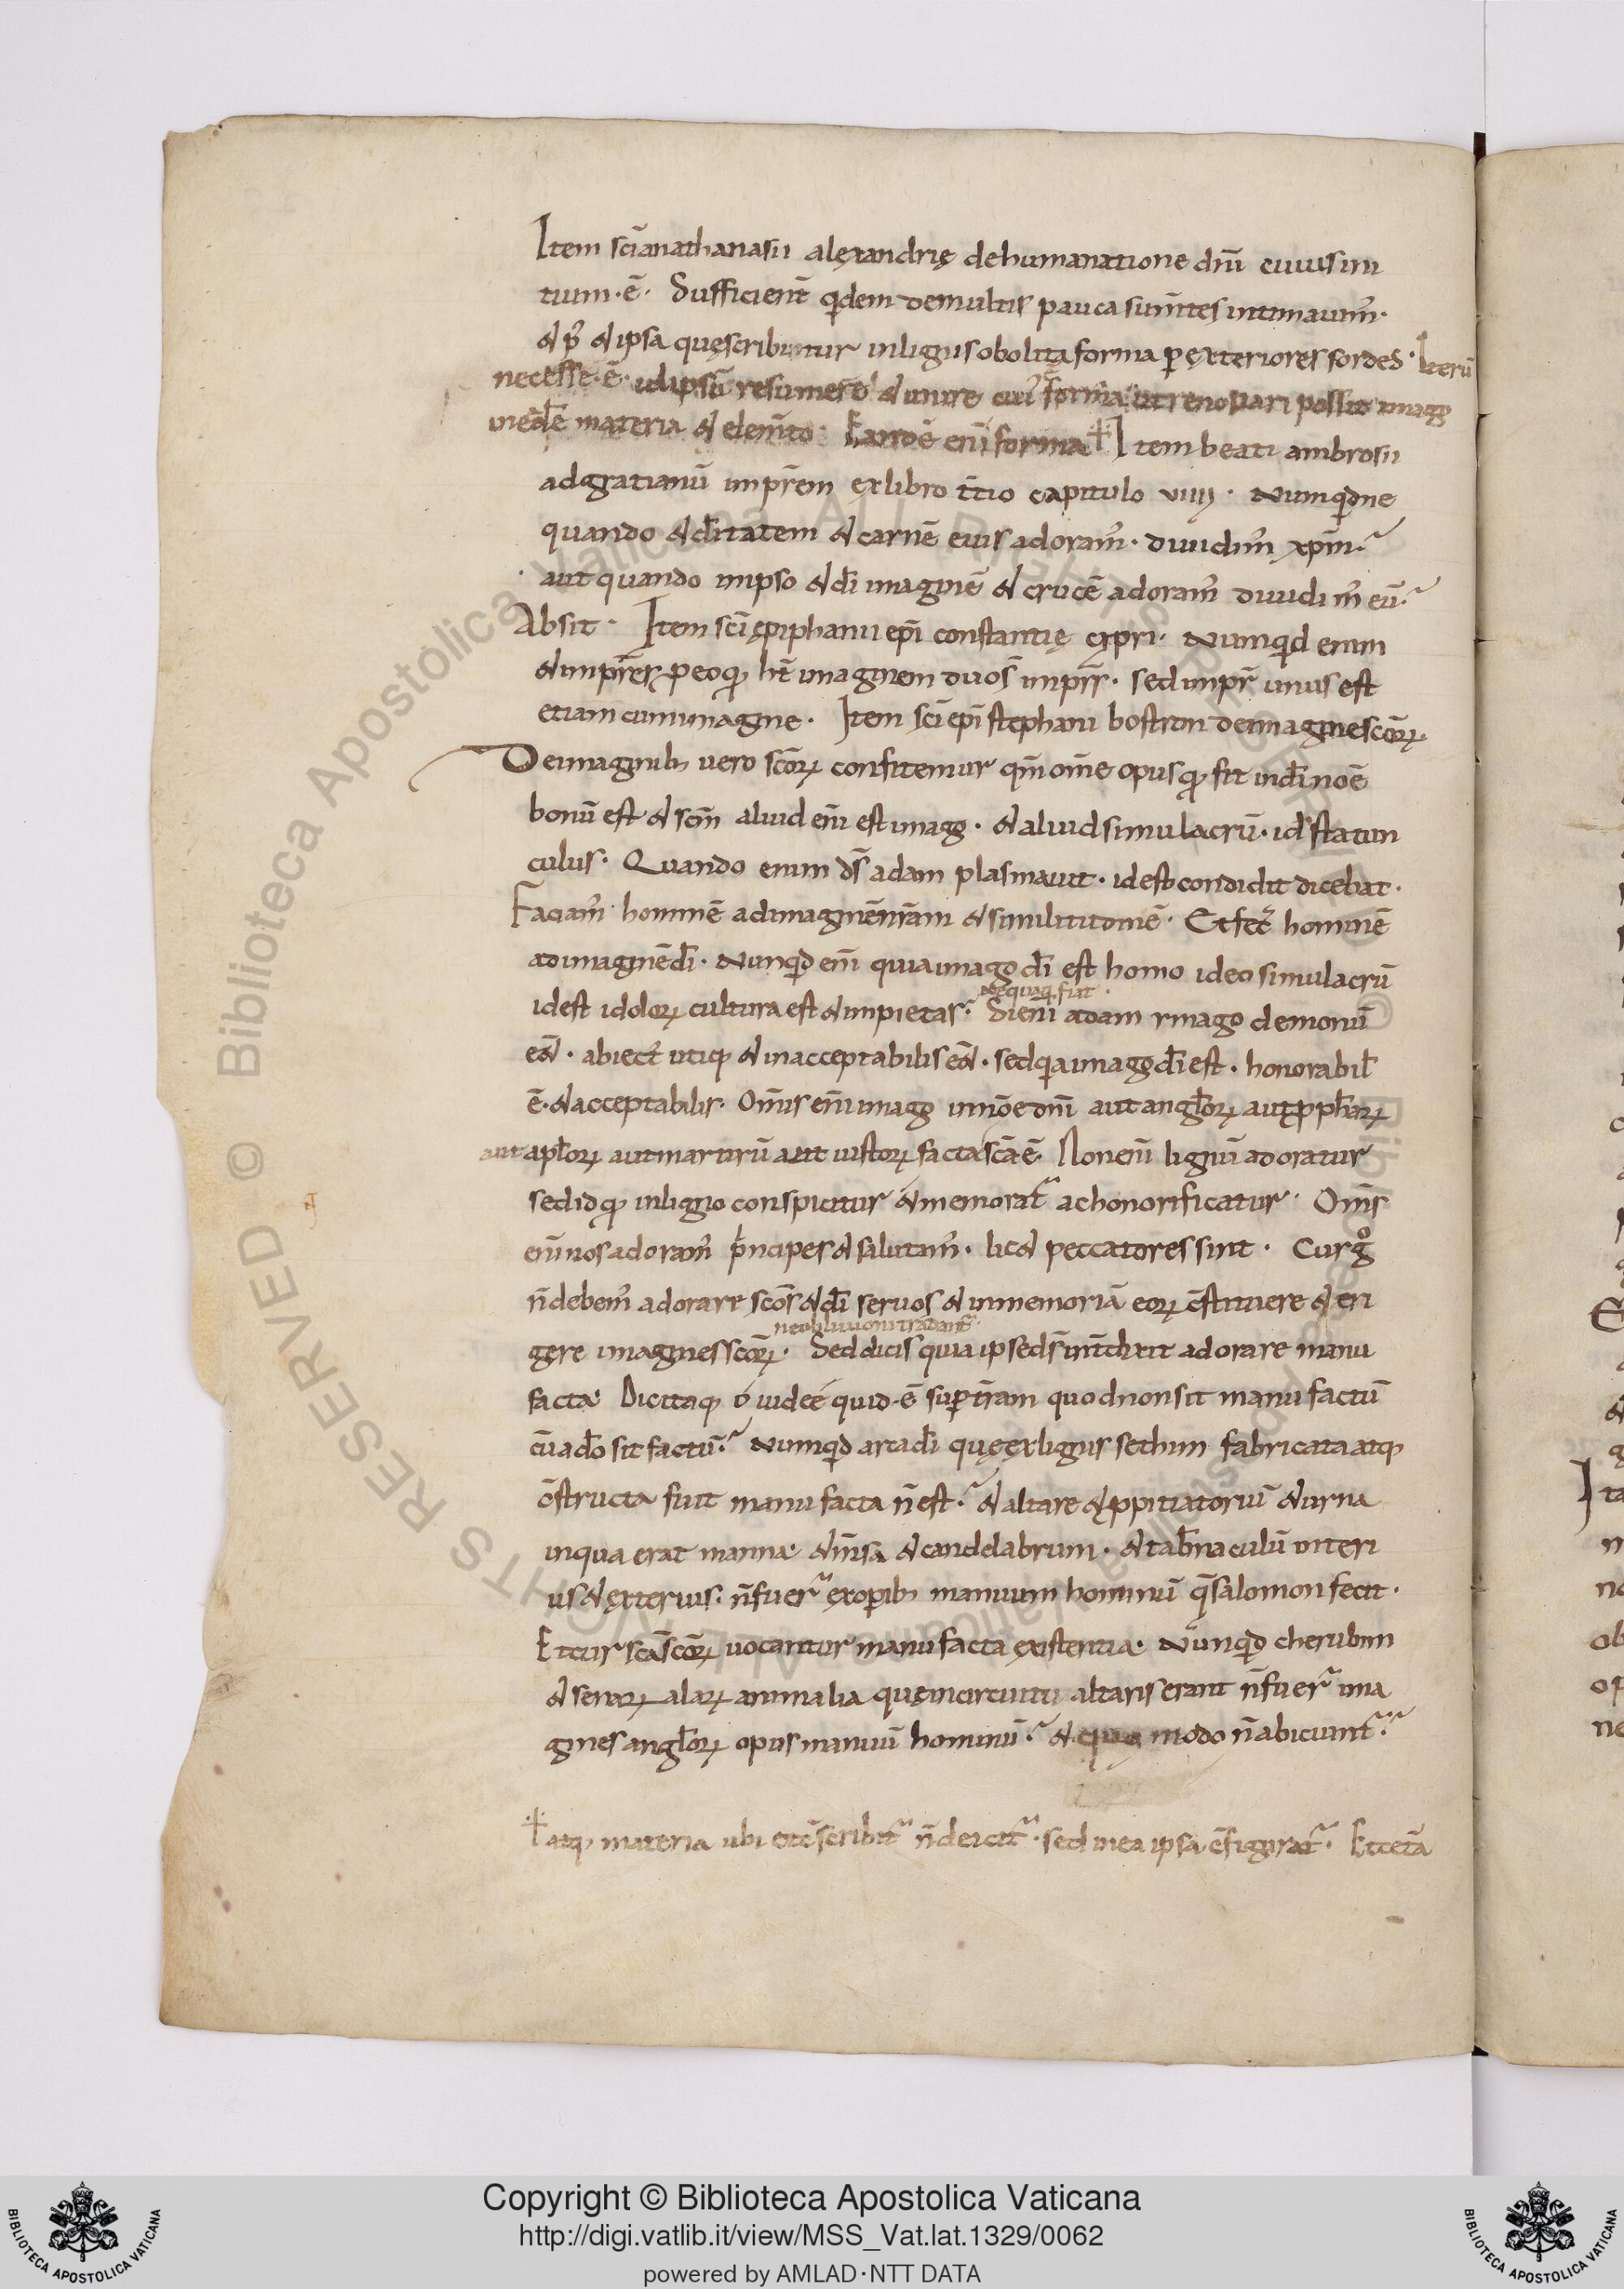 Item scī anathanasii alęxandrię dehumanatione dn̄i cuius ini
tium·ē· Sufficient̄ qͥdem demultis pauca sum̄tes intimauim̄·
& ipsa quęscribuntur inlignis obolita forma p exteriores sordes· Iterū
necesse·ē· resumere & unire forma ut renouari possit imago
materia & elem̄to· forma ⁜ Item beati ambrosii
adgratianū imp̄rem exlibro t̄tio capitulo viiii· Numqͥdne
quando & dītatem & carnē eius adoram̄· diuidim̄ xp̄m·?
aut quando inipso & dī imaginē & crucē adoram̄ diuidim̄ eū·?
Absit· Item scī ępiphanii ep̄i constantię cypri· Numqͥd enim
& imp̄res p eo q; ht̄ imaginem duos imp̄r̄r· sed imp̄r unus est
etiam cum imagine· Item scī ep̄i stephani bostron deimagine scōꝝ·
Deimaginib; uero scōꝝ confitemur qm̄ om̄e opus q; fit indī noē
bonū est & scm̄ aliud eni̅ est imago· & aliud simulacrū· id ̄ statun
culus· Quando enim ds̄ adam plasmauit· idest condidit dicebat·
Faciam̄ hominē adimaginēnrām & similitudinē· Et fec̄ hominē
adimaginē dī· Nunqͥd eni̅ quia imago dī est homo ideo simulacrū
nequaq; fiat·
idest idoloꝝ cultura est & impietas·? Si eni̅ adam imago demonū
eēt· abiect̄ utiq; & inacceptabilis eēt· sed qͥa imago dī est· honorabil̄
ē·& acceptabilis· Om̄is eni̅ imago inno̅e dn̄i aut angl̄oꝝ aut pphaꝝ
aut apl̄oꝝ aut martirū aut iustoꝝ facta scā ē· Non eni̅ lignū adoratur
sed id q; inligno conspicitur & memorat̄ ac honorificatur· Om̄s
eni̅ nos adoram̄ pͥncipes & salutam̄· lic& peccatores sint· Cur gͦ
n̄ debem̄ adorare scōs & dī seruos & inmemoriā eoꝝ c̄stituere & eri
ne obliuioni tradant̄·
gere imagines scōꝝ· Sed dicis quia ipse ds̄ int̄dixit adorare manu
facta· Dic itaq; ó iudeé quid·ē sup t̄ram quod non sit manu factū
cū a dō sit factū·? Numqͥd arca dī quę exlignis sethim fabricata atq;
c̄structa fuit manu facta n̄ est·? & altare & ppitiatoriū & urna
inqua erat manna· & m̄sa & candelabrum· & tab̄naculū interi
us & exterius· n̄ fuer̄ ex opib; manuum hominū q̄ salomon fecit·
Et cur scā scōꝝ uocantur manu facta existentia· Nunqͥd cherubim
& senaꝝ alaꝝ animalia quę incircuitu altaris erant n̄ fuer̄ ima
gines angl̄oꝝ opus manuū hominū·? & quo modo n̄ abiciunt̄·?
⁜ atq; materia ubi scribit̄ n̄ deicit̄· sed inea ipsa c̄figurat̄· Et cetā
Copyright © Biblioteca Apostolica Vaticana
http://digi.vatlib.it/view/MSS_Vat.lat.1329/0062
powered by AMLAD·NTT DATA
BIBLIOTECA APOSTOLICA VATICANA
BIBLIOTECA APOSTOLICA VATICANA